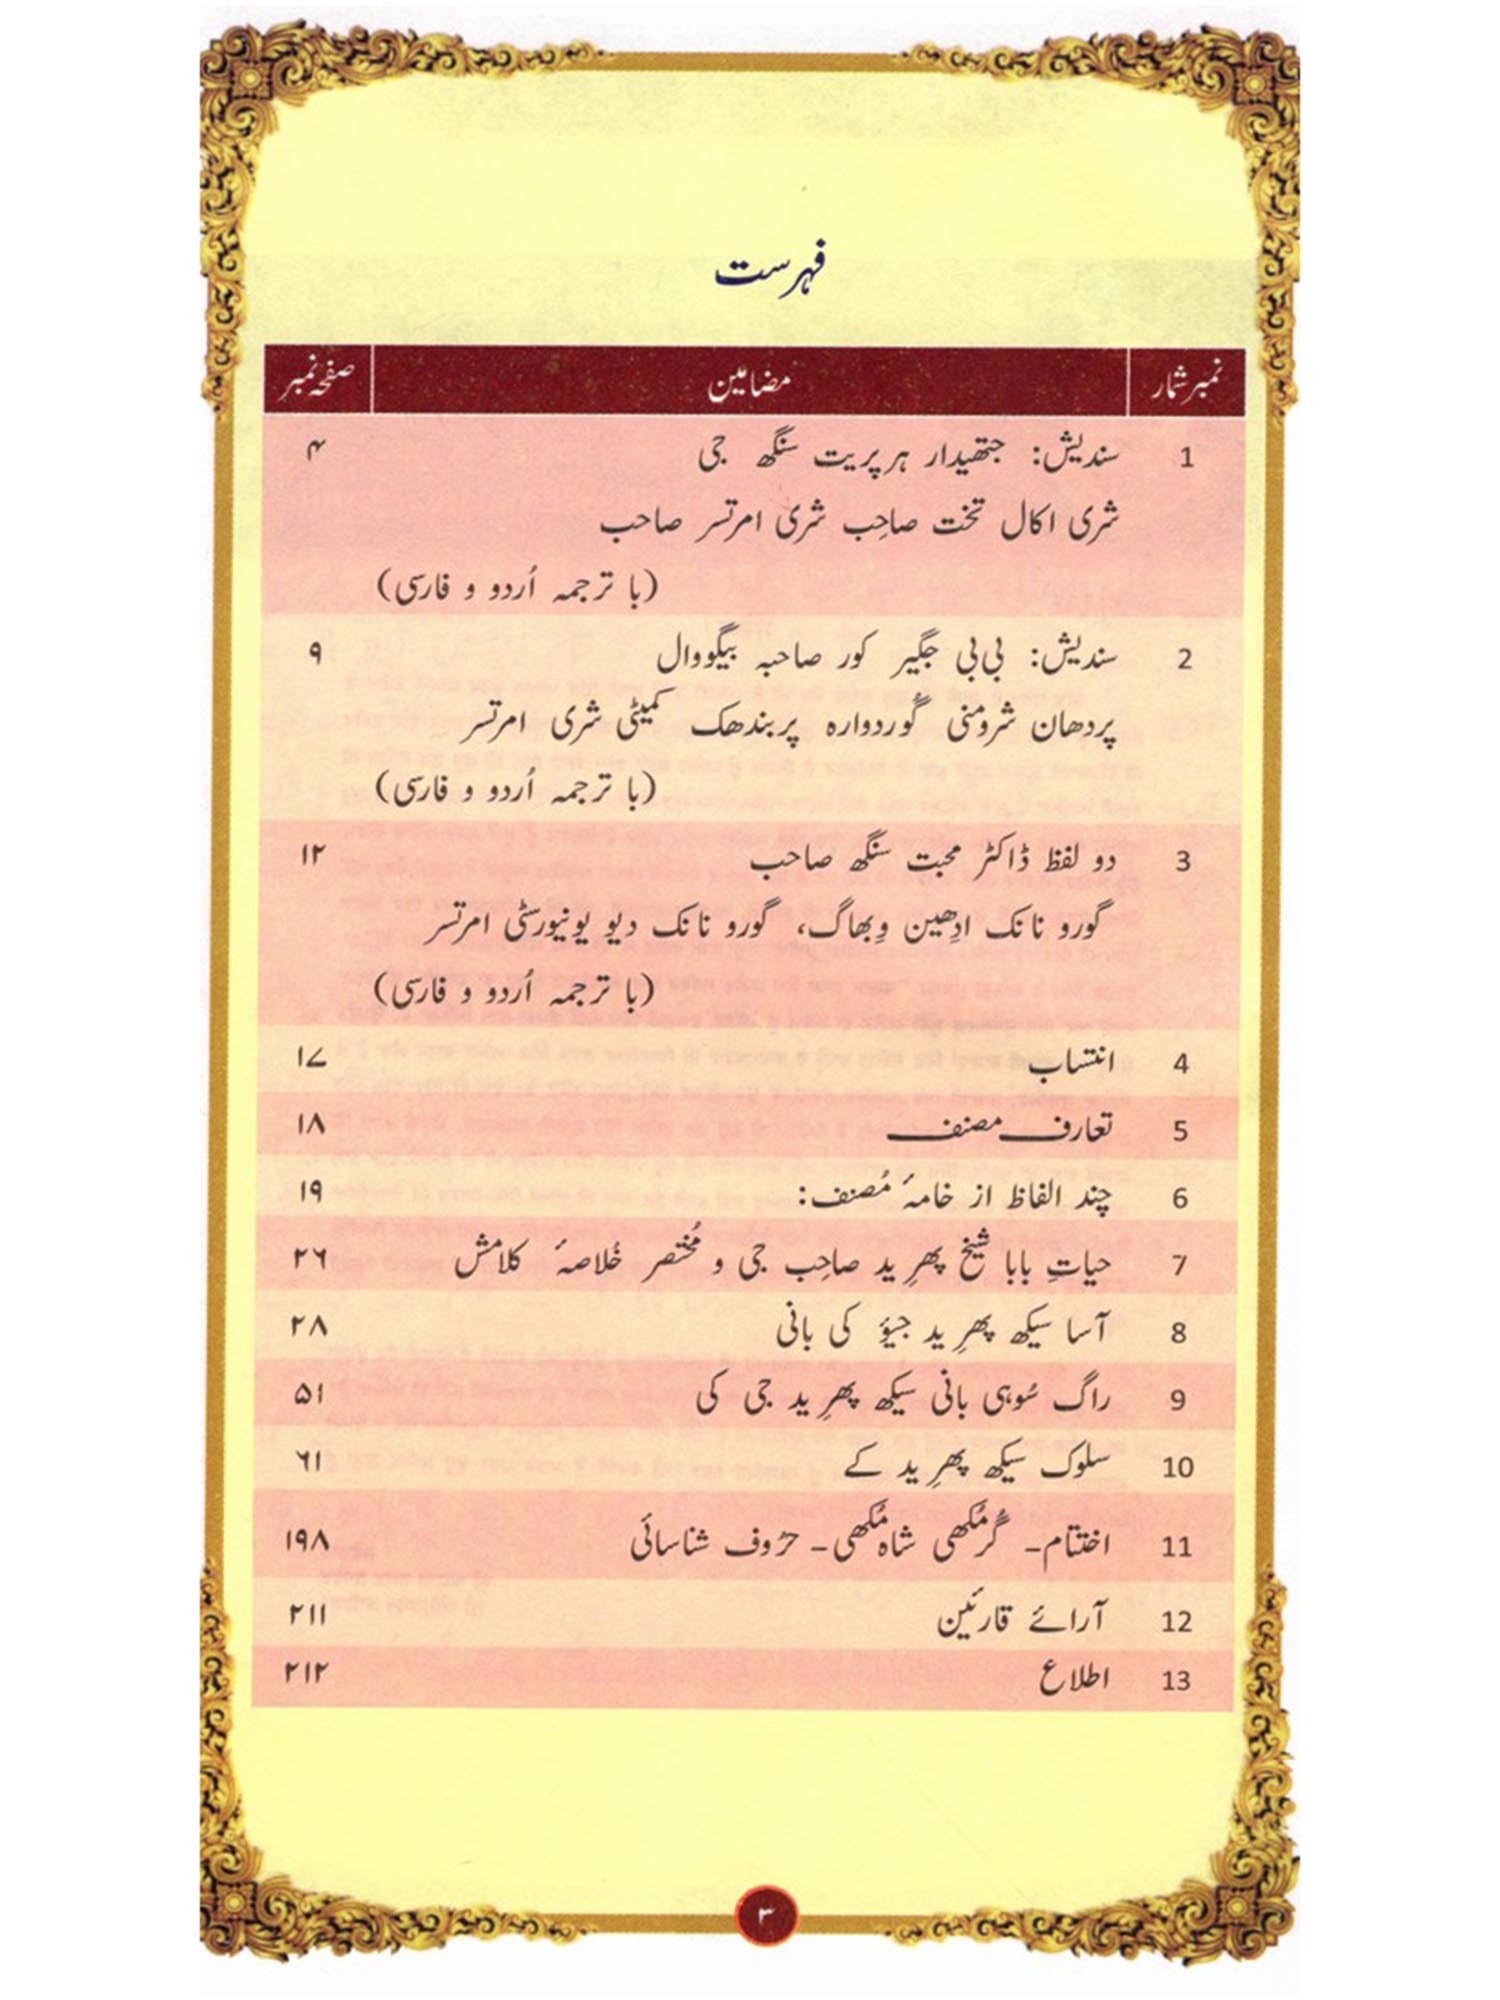 فہرست
نمبر شمار مضامین صفحہ نمبر
1 سندیش: جتھیدار ہرپریت سنگھ جی ۴
شری اکال تخت صاحِب شری امرتسر صاحب
(با ترجمہ اُردو و فارسی)
2 سندیش: بی بی جگیر کور صاحبہ بیگووال ۹
پردھان شرومنی گوردوارہ پربندھک کمیٹی شری امرتسر
(با ترجمہ اُردو و فارسی)
3 دو لفظ ڈاکٹر محبت سنگھ صاحب ۱۲
گورو نانک ادِھین وِبھاگ، گورو نانک دیو یونیورسٹی امرتسر
(با ترجمہ اُردو و فارسی)
4 انتساب ۱۷
5 تعارف مصنف ۱۸
6 چند الفاظ از خامۂ مُصنف: ۱۹
7 حیاتِ بابا شیخ پھرِید صاحِب جی و مُختصر خُلاصۂ کلامش ۲۶
8 آسا سیکھ پھرِید جیؤ کی بانی ۲۸
9 راگ سُوہی بانی سیکھ پھرِید جی کی ۵۱
10 سلوک سیکھ پھرِید کے ۶۱
11 اختتام- گُرمُکھی شاہ مُکھی- حرُوف شناسائی ۱۹۸
12 آرائے قارئین ۲۱۱
13 اطلاع ۲۱۲
۳